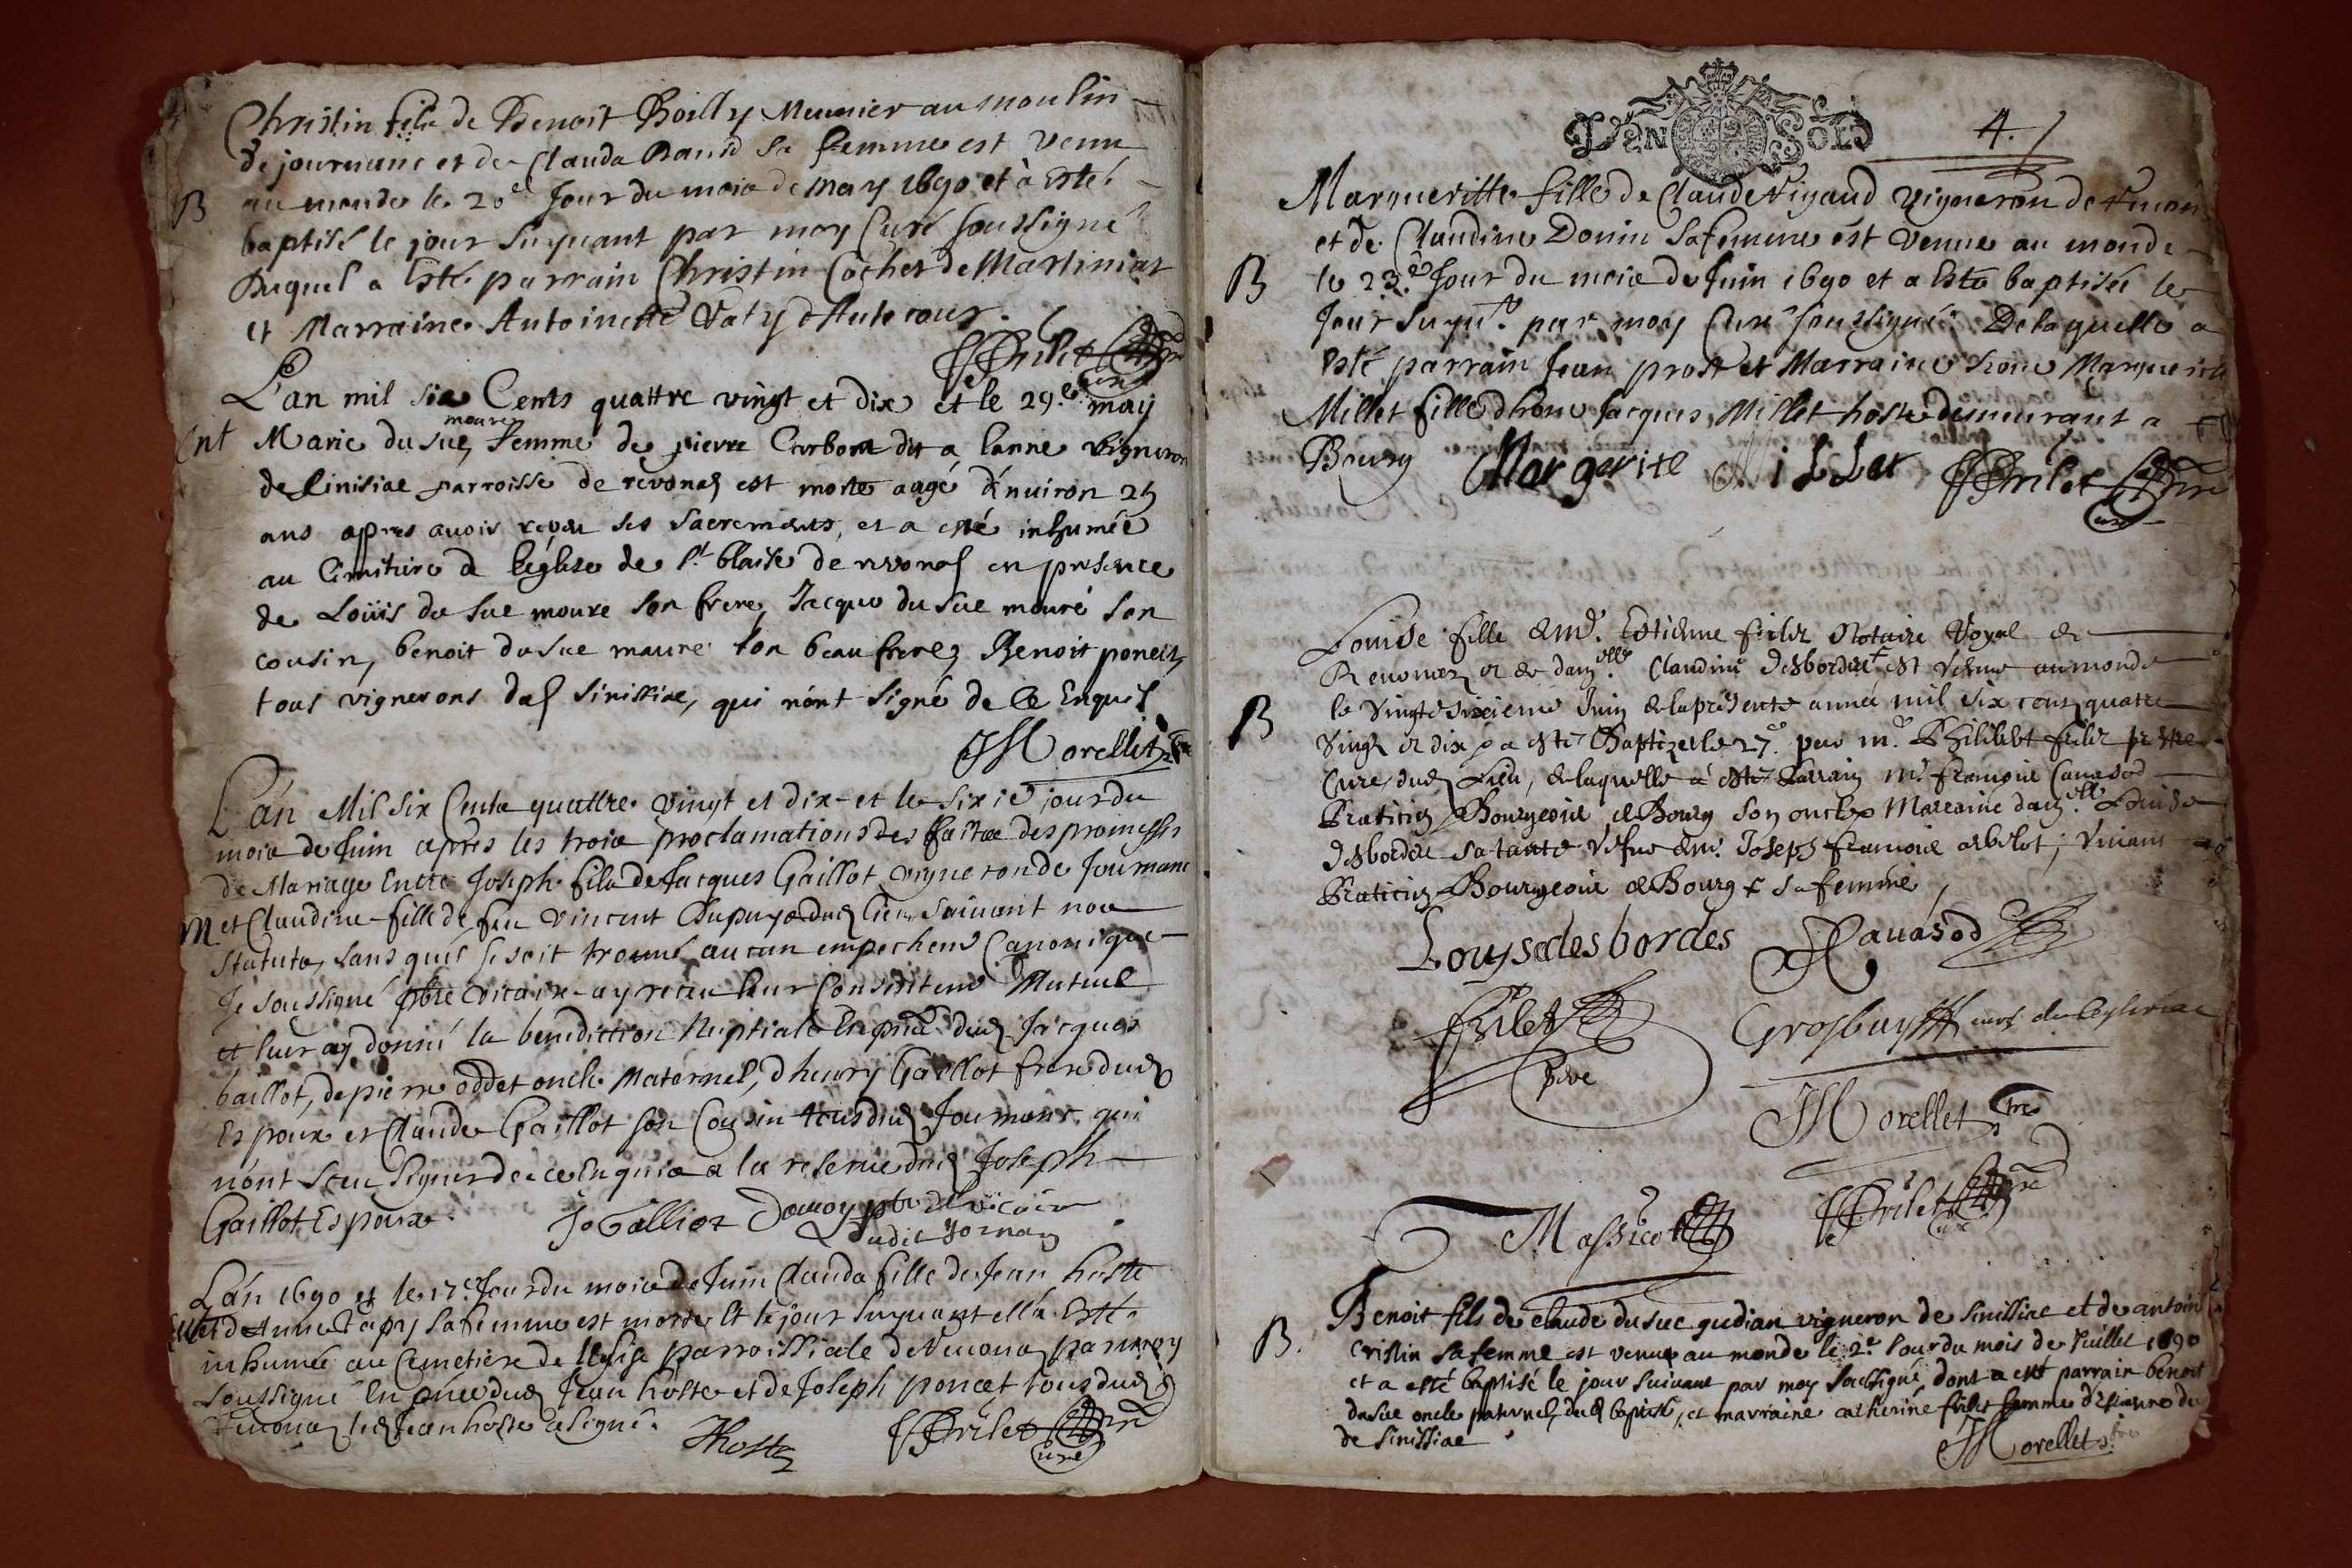 Christin fils de Benoist Boilly Meunier au moulin
de journans et de Clauda Rand sa femme est venu
B au monde le 20e Jour du mois de may 1690 et à esté
baptisé le jour suyuant par moy Curé soussigné
Duquel a Esté parrain Christin Cochet de Martinias
et Marraine Antoinette Vaty
L'an mil six Cents quattre vingt et dix et le 29e may
moure
Ent Marie du sue femme de pierre Carbon dit a lanne vigneron
de sinisiae parroisse de revonas est morte aagé d'enuiron 25
ans apres auoir reçeu ses sacrements, et a esté inhumée
au Cimitiere de l'eglise de St blaise de revonas en presence
de Loüis du sue moure son frere, Jacque du sue mouré son
cousin, benoit du sue moure son beau frere, Benoit poncet,
tous vignerons de sinissiae, qui n'ont signé de ce Enquis
JMorellet
L'an Mil six Cents quattre vingt et dix et le sixie jour du
mois de Juin après les trois proclamations des faites des promesses
de Mariage Entre Joseph fils de Jacques Gaillot vigneron de Journans
M et Claudine fille de feu vincent Dupuys dud lieu suivant nos
statuts, sans quil se soit trouué aucun empechemt Canonique
Je soussigné pbre vicaire ay receu leur Consentemt Mutuel
et leur ay donné la benediction Nuptiale En pnce dud Jacques
Gaillot, de pierre oddet oncle Maternel, d'henry Gaillot frere dud
Espoux et Claude Gaillot son Cousin tous dud Journans qui
n'ont sceu signer de ce Enquis a la reserue dud Joseph
Gaillot Espoux. Jo Gailliot Dauoy pbre vicaire
dudit Jornan
L'an 1690 et le 17e Jour du mois de Juin Clauda fille de Jean hoste
et d'Anne Papy sa femme est morte Et le jour suyuant ella Esté
inhumée au Cemetiere de l'Eglise parroissiale de Reuonas par moy
soussigné En pnce dud Jean hoste et de Joseph poncet tous dud
Reuonas led Jean hoste a signé.
JHoste PFrilet curé
DEN SOLS
4.
Margueritte fille de Claude Rigaud vigneron de Reuonas
et de Claudine Donin sa femme est venue au monde
B le 23e Jour du mois de Juin 1690 et a Esté baptisée le
Jour suyut par moy Curé soussigné. De laquelle a
Esté parrain Jean prost et Marraine hone Margueritte
Millet fille d'hone Jacques Millet hoste demeurant a
Bourg Margerite Millet PFrilet curé
Louise fille de Mr. Estienne frilet Notaire Royal de
Reuonas et de damlle Claudine Desbordes est venue au monde
B le vingt sixieme Juin de la présente année mil six cens quatre
vingt et dix a esté Baptizee le 27e par mr Philibert frilet pretre
Curé dud Lieu, de laquelle a esté Parrain mr francois Cauasod
Praticien Bourgeois de Bourg son oncle Marraine damlle Louise
Desbordes sa tante vefue de mr Joseph francois vivant
Praticien Bourgeois de Bourg sa femme
Louyse desbordes Cauasod
Frilet pere Grosbuys curé de
JMorellet ptre
Massicot PFrilet curé
B. Benoit fils de claude du sue gudian vigneron de sinissiae et de antoin
Cristin sa femme est venue au monde le 2e Jour du mois de Juillet 1690
et a esté baptisé le jour suivant par moy soussigné, dont a esté parrain benoit
du sue oncle paternel dud baptisé, et marraine catherine frilet femme d'estienne du
de sinissiae
JMorellet ptre